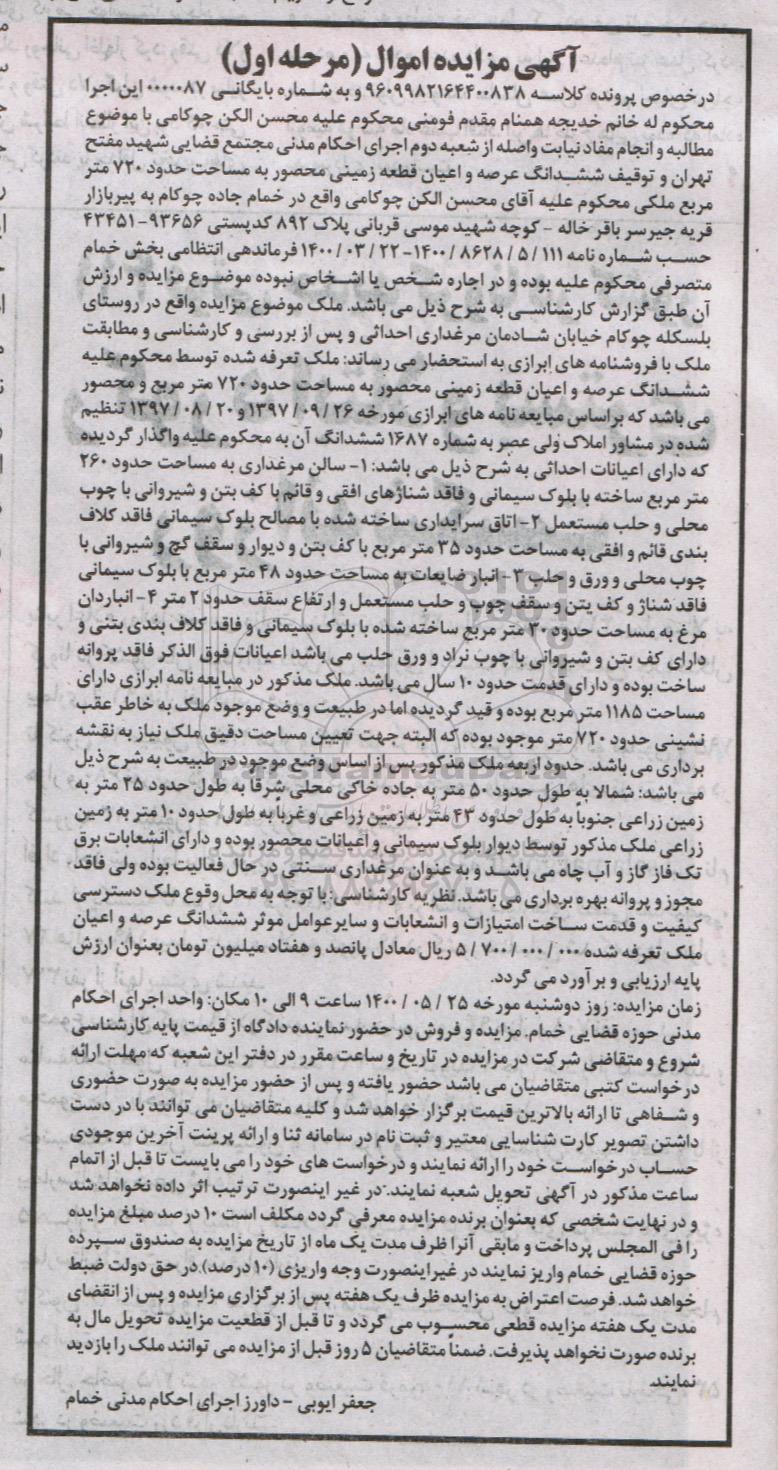 آگهی مزایده اموال (مرحله اول)
درخصوص پرونده کلاسه ۹۶۰۹۹۸۲۱۶۴۴۰۰۸۳۸ و به شماره بایگانی ۰۰۰۰۰۸۷ این اجرا
محکوم له خانم خدیجه همنام مقدم فومنی محکوم علیه محسن الکن چوکامی با موضوع
مطالبه و انجام مفاد نیابت واصله از شعبه دوم اجرای احکام مدنی مجتمع قضایی شهید مفتح
تهران و توقیف ششدانگ عرصه و اعیان قطعه زمینی محصور به مساحت حدود ۷۲۰ متر
مربع ملکی محکوم علیه آقای محسن الکن چوکامی واقع در خمام جاده چوکام به پیربازار
قریه جیرسر باقر خاله - کوچه شهید موسی قربانی پلاک ۸۹۲ کدپستی ۹۳۶۵۶-۴۳۴۵۱
حسب شماره نامه ۱۱۱ / ۵ / ۸۶۲۸ / ۱۴۰۰- ۲۲ / ۰۳ / ۱۴۰۰ فرماندهی انتظامی بخش خمام
متصرفی محکوم علیه بوده و در اجاره شخص یا اشخاص نبوده موضوع مزایده و ارزش
آن طبق گزارش کارشناسی به شرح ذیل می باشد. ملک موضوع مزایده واقع در روستای
بلسکله چوکام خیابان شادمان مرغداری احداثی و پس از بررسی و کارشناسی و مطابقت
ملک با فروشنامه های ابرازی به استحضار می رساند: ملک تعرفه شده توسط محکوم علیه
ششدانگ عرصه و اعیان قطعه زمینی محصور به مساحت حدود ۷۲۰ متر مربع و محصور
می باشد که براساس مبایعه نامه های ابرازی مورخه ۲۶ / ۰۹ / ۱۳۹۷ و ۲۰ / ۰۸ / ۱۳۹۷ تنظیم
شده در مشاور املاک ولی عصر به شماره ۱۶۸۷ ششدانگ آن به محکوم علیه واگذار گردیده
که دارای اعیانات احداثی به شرح ذیل می باشد: ۱- سالن مرغداری به مساحت حدود ۲۶۰
متر مربع ساخته با بلوک سیمانی و فاقد شناژهای افقی و قائم با کف بتن و شیروانی با چوب
محلی و حلب مستعمل ۲- اتاق سرایداری ساخته شده با مصالح بلوک سیمانی فاقد کلاف
بندی قائم و افقی به مساحت حدود ۳۵ متر مربع با کف بتن و دیوار و سقف گچ و شیروانی با
چوب محلی و ورق و حلب ۳- انبار ضایعات به مساحت حدود ۴۸ متر مربع با بلوک سیمانی
فاقد شناژ و کف بتن و سقف چوب و حلب مستعمل و ارتفاع سقف حدود ۲ متر ۴- انباردان
مرغ به مساحت حدود ۳۰ متر مربع ساخته شده با بلوک سیمانی و فاقد کلاف بندی بتنی و
دارای کف بتن و شیروانی با چوب نراد و ورق حلب می باشد اعیانات فوق الذکر فاقد پروانه
ساخت بوده و دارای قدمت حدود ۱۰ سال می باشد. ملک مذکور در مبایعه نامه ابرازی دارای
مساحت ۱۱۸۵ متر مربع بوده و قید گردیده اما در طبیعت و وضع موجود ملک به خاطر عقب
نشینی حدود ۷۲۰ متر موجود بوده که البته جهت تعیین مساحت دقیق ملک نیاز به نقشه
برداری می باشد. حدود اربعه ملک مذکور پس از اساس وضع موجود در طبیعت به شرح ذیل
می باشد: شمالا به طول حدود ۵۰ متر به جاده خاکی محلی شرقاً به طول حدود ۲۵ متر به
زمین زراعی جنوباً به طول حدود ۴۳ متر به زمین زراعی و غرباً به طول حدود ۱۰ متر به زمین
زراعی ملک مذکور توسط دیوار بلوک سیمانی و اعیانات محصور بوده و دارای انشعابات برق
تک فاز گاز و آب چاه می باشد و به عنوان مرغداری سنتی در حال فعالیت بوده ولی فاقد
مجوز و پروانه بهره برداری می باشد. نظریه کارشناسی: با توجه به محل وقوع ملک دسترسی
کیفیت و قدمت ساخت امتیازات و انشعابات و سایر عوامل موثر ششدانگ عرصه و اعیان
ملک تعرفه شده ۰۰۰ / ۰۰۰ / ۷۰۰ / ۵ ریال معادل پانصد و هفتاد میلیون تومان بعنوان ارزش
پایه ارزیابی و برآورد می گردد.
زمان مزایده: روز دوشنبه مورخه ۲۵ / ۰۵ / ۱۴۰۰ ساعت ۹ الی ۱۰ مکان: واحد اجرای احکام
مدنی حوزه قضایی خمام. مزایده و فروش در حضور نماینده دادگاه از قیمت پایه کارشناسی
شروع و متقاضی شرکت در مزایده در تاریخ و ساعت مقرر در دفتر این شعبه که مهلت ارائه
درخواست کتبی متقاضیان می باشد حضور یافته و پس از حضور مزایده به صورت حضوری
و شفاهی تا ارائه بالاترین قیمت برگزار خواهد شد و کلیه متقاضیان می توانند با در دست
داشتن تصویر کارت شناسایی معتبر و ثبت نام در سامانه ثنا و ارائه پرینت آخرین موجودی
حساب درخواست خود را ارائه نمایند و درخواست های خود را می بایست تا قبل از اتمام
ساعت مذکور در آگهی تحویل شعبه نمایند. در غیر اینصورت ترتیب اثر داده نخواهد شد
و در نهایت شخصی که بعنوان برنده مزایده معرفی گردد مکلف است ۱۰ درصد مبلغ مزایده
را فی المجلس پرداخت و مابقی آنرا ظرف مدت یک ماه از تاریخ مزایده به صندوق سپرده
حوزه قضایی خمام واریز نمایند در غیراینصورت وجه واریزی (۱۰ درصد) در حق دولت ضبط
خواهد شد. فرصت اعتراض به مزایده ظرف یک هفته پس از برگزاری مزایده و پس از انقضای
مدت یک هفته مزایده قطعی محسوب می گردد و تا قبل از قطعیت مزایده تحویل مال به
برنده صورت نخواهد پذیرفت. ضمناً متقاضیان ۵ روز قبل از مزایده می توانند ملک را بازدید
نمایند.
جعفر ایوبی - داورز اجرای احکام مدنی خمام